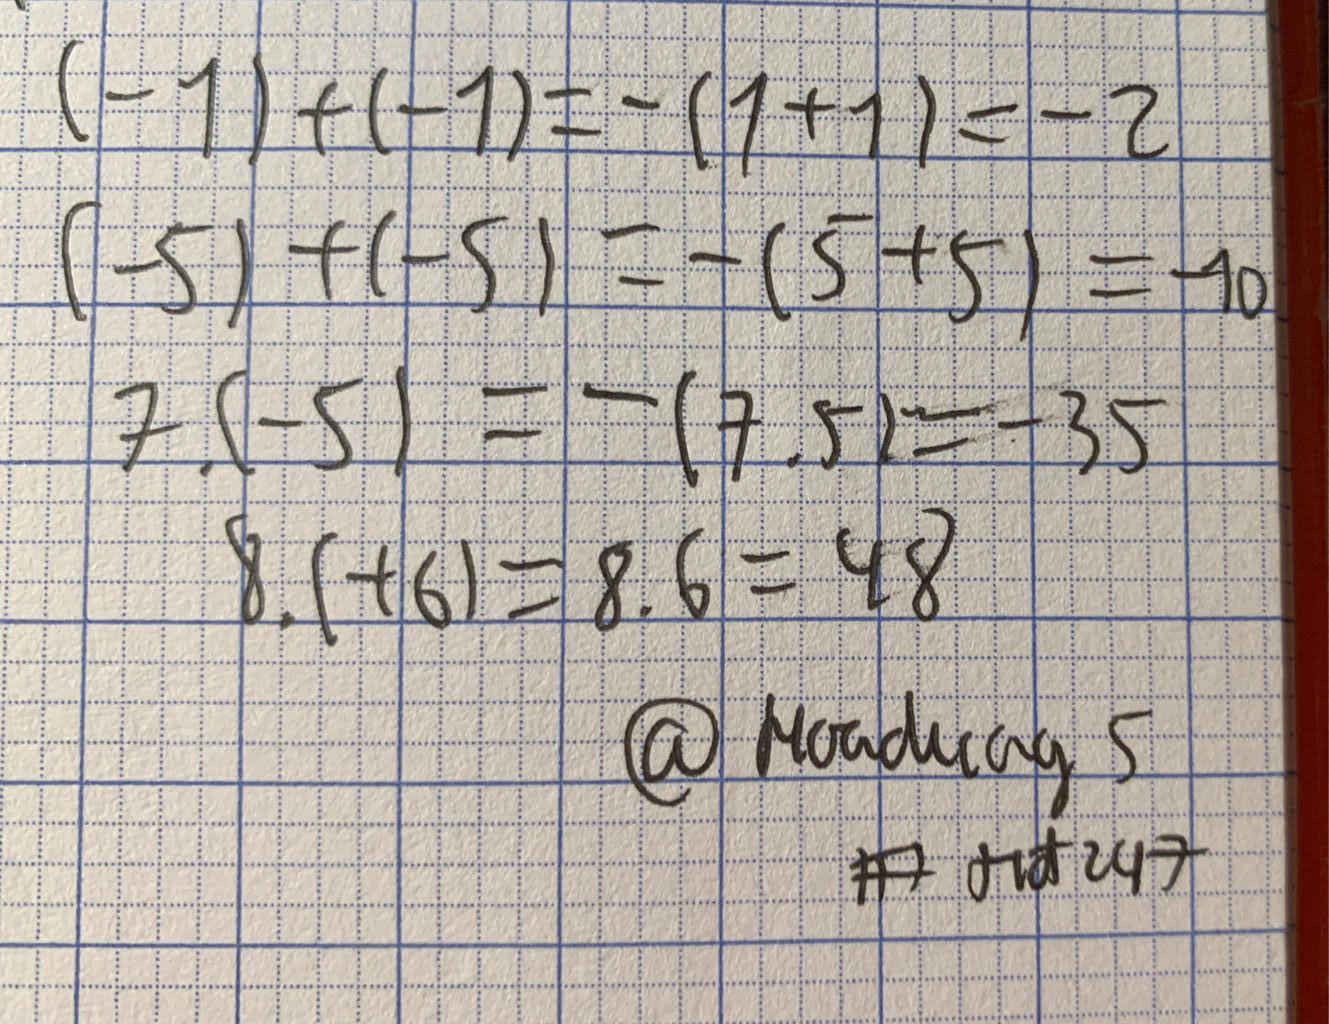 (-1)+(-1)=-(1+1)=-2
(-5)+(-5)=-(5+5)=-10
7.(-5)=-(7.5)=-35
8.(+6)=8.6=48
@ 5
# 247